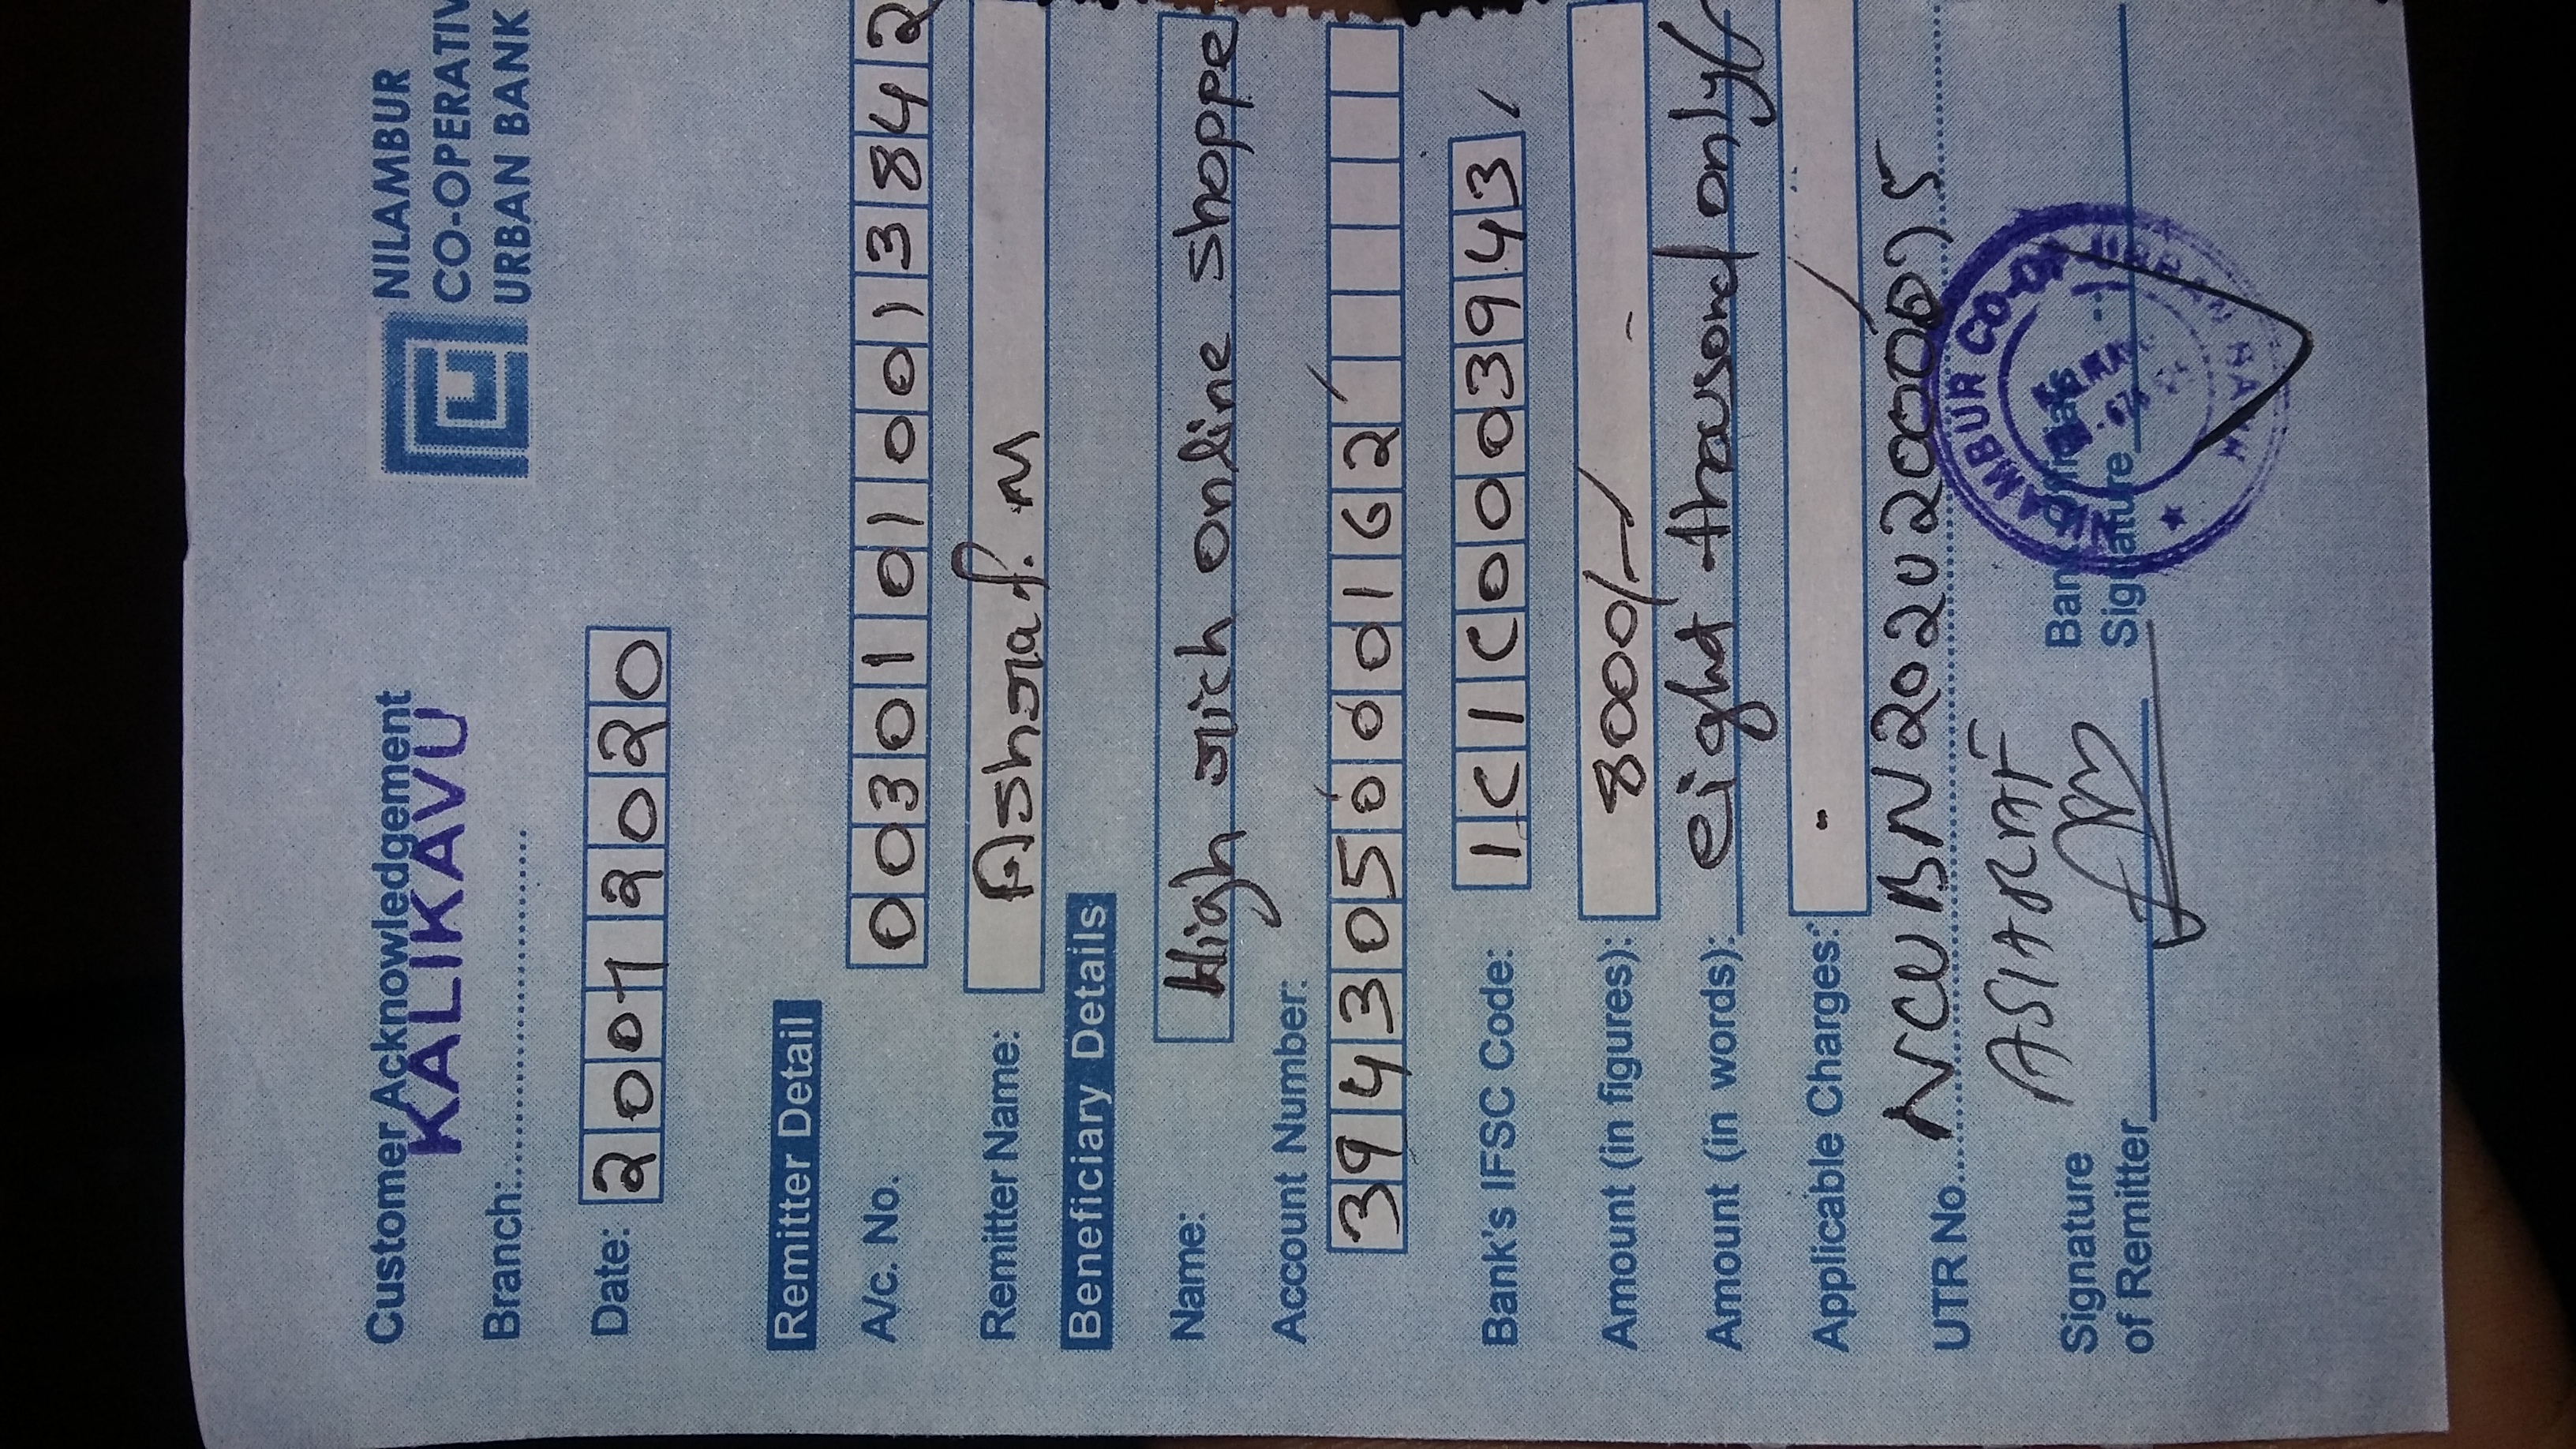 Customer Acknowledgement
KALIKAVU
Branch:..........................
NILAMBUR
CO-OPERATIV
URBAN BANK
Date: 20012020
Remitter Detail
A/c. No. 00301010013842
Remitter Name: Ashraf. M
Beneficiary Details
Name: High rich online shoppe
Account Number:
394305000162
Bank's IFSC Code: ICIC0003943
Amount (in figures): 8000/-
Amount (in words): eight thousand only
Applicable Charges: -
UTR No...
ASHRAF
Signature
of Remitter
Bank Officials
Signature
NILAMBUR CO-OP URBAN BANK